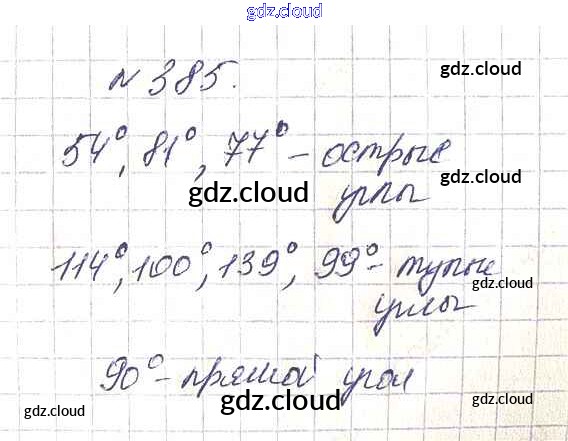 gdz.cloud
gdz.cloud
№ 385.
gdz.cloud
54°, 81°, 77° - острые
gdz.cloud
gdz.cloud
углы
114°, 100°, 139°, 99° - тупые
gdz.cloud
углы
gdz.cloud
90° - прямой угол
gdz.cloud
gdz.cloud
gdz.cloud